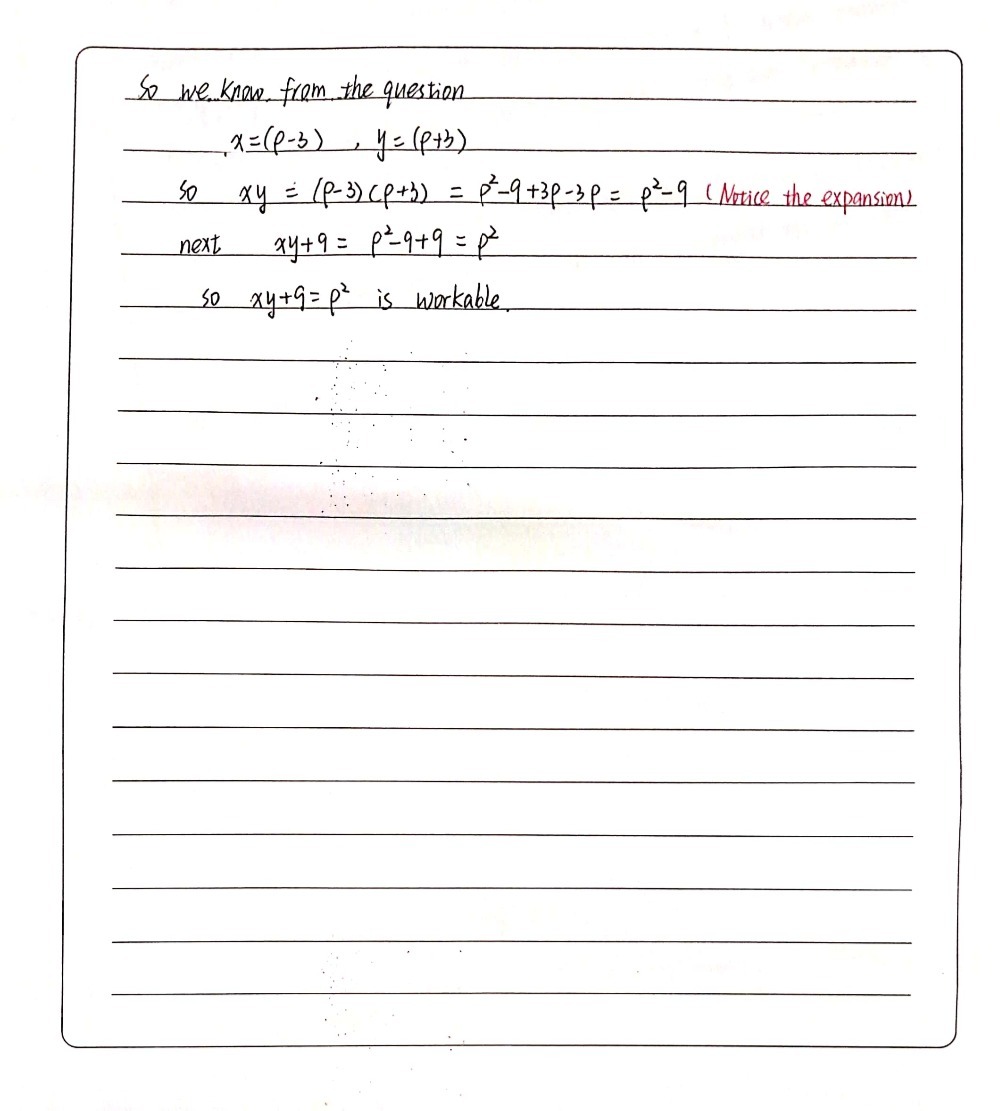 So we know from the question
x=(p-3) , y=(p+3)
so xy = (p-3)(p+3) = p²-9+3p-3p = p²-9 (Notice the expansion)
next xy+9 = p²-9+9 = p²
so xy+9=p² is workable.